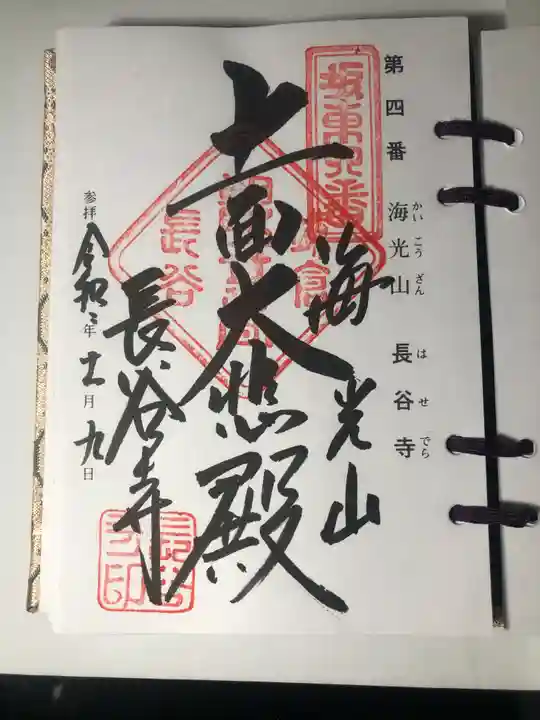 第四番 海光山 長谷寺
かいこうざん はせでら
坂東四番
海光山
十一面大悲殿
長谷寺
参拝 令和二年十一月九日